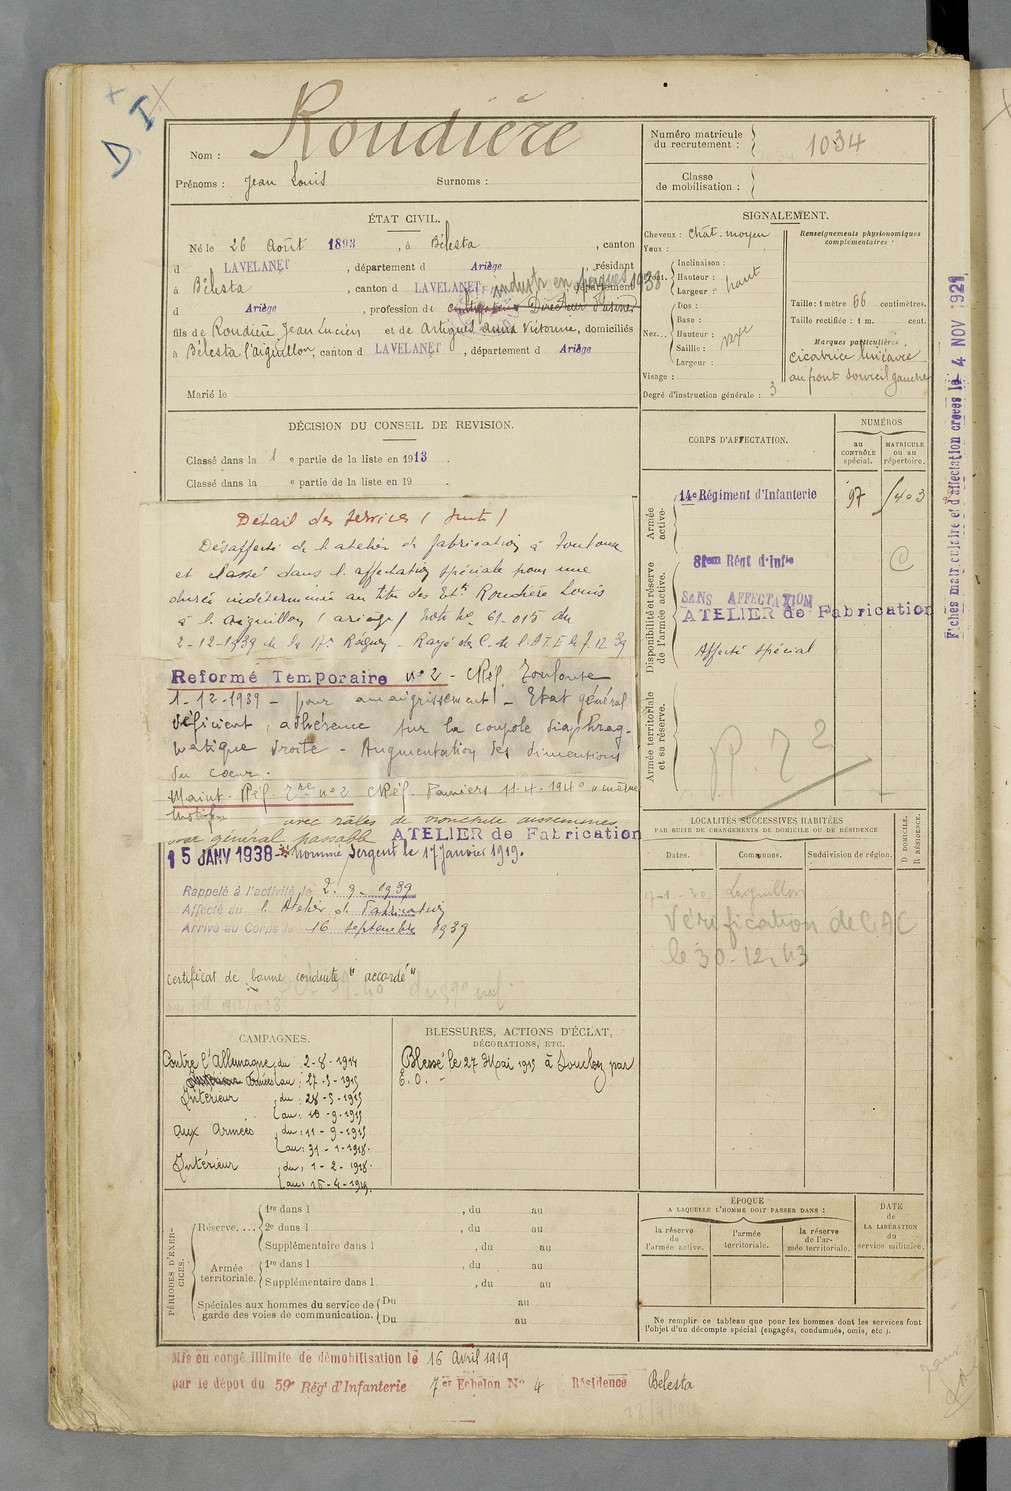 D I
Nom : Roudière
Prénoms : Jean Louis Surnoms :
Numéro matricule du recrutement : 1034
Classe de mobilisation :
ÉTAT CIVIL.
Né le 26 Août 1893, à Bélesta, canton
d LAVELANET, département d Ariège, résidant
à Bélesta, canton d LAVELANET, département
industr en peignes 1938
d Ariège, profession de cultivateur Directeur d'usines
fils de Roudière Jean Lucien et de Artigues Anna Victorine, domiciliés
à Bélesta l'aiguillon, canton d LAVELANET, département d Ariège
Marié le
SIGNALEMENT.
Cheveux : chat. moyen
Yeux :
Front. Inclinaison :
Hauteur : haut
Largeur :
Nez... Dos :
Base :
Hauteur : vexe
Saillie :
Largeur :
Visage :
Degré d'instruction générale : 3
Renseignements physionomiques complémentaires :
Taille : 1 mètre 66 centimètres.
Taille rectifiée : 1 m. cent.
Marques particulières :
cicatrice linéaire
au front sourcil gauche
Fiches matriculaire et d'affectation créées le 4 NOV 1921
DÉCISION DU CONSEIL DE REVISION.
Classé dans la 1 e partie de la liste en 1913.
Classé dans la e partie de la liste en 19 .
Détail des Services (suite)
Désaffecté de l'atelier de fabrication à Toulouse
et classé dans l'affectation spéciale pour une
durée indéterminée au titre des Ets Roudière Louis
à l'aiguillon (ariège) Note No 61-015 du
2-12-1939 de la 17e Région - Rayé des C. de l'A.T.E le 7.12.39
Reformé Temporaire n° 2 - CRéf. Toulouse
1-12-1939 - pour amaigrissement - Etat général
déficient, adhérence sur la coupole diaphrag-
matique droite - Augmentation des dimensions
du coeur.
Maint. Réf. Tre n° 2 CRéf. Pamiers 11-4-1940 "même
motif"
avec râles de bronchite
général passable ATELIER de Fabrication
15 JANV 1938
Nommé Sergent le 17 Janvier 1919.
Rappelé à l'activité le 2.9.1939
Affecté au l'Atelier de Fabrication
Arrivé au Corps le 16 septembre 1939
Certificat de bonne conduite "accordé"
CORPS D'AFFECTATION.
NUMÉROS
au CONTRÔLE spécial.
MATRICULE ou au répertoire.
Armée active.
14e Régiment d'Infanterie 97
Disponibilité et réserve de l'armée active.
81em Régt d'Infie
SANS AFFECTATION
ATELIER de Fabrication
Affecté spécial
Armée territoriale et sa réserve.
LOCALITÉS SUCCESSIVES HABITÉES
PAR SUITE DE CHANGEMENTS DE DOMICILE OU DE RÉSIDENCE
Dates. Communes. Subdivision de région. D DOMICILE. R RÉSIDENCE.
Laiguillon
Vérification de C.A.C
le 30-12-43
CAMPAGNES.
Contre l'Allemagne, du 2-8-1914
Armées au : 27-5-1915
Intérieur du : 28-5-1915
au : 10-9-1915
aux Armées du : 11-9-1915
au : 31-1-1918.
Intérieur du : 1-2-1918.
au : 15-4-1919.
BLESSURES, ACTIONS D'ÉCLAT,
DÉCORATIONS, ETC.
Blessé le 27 Mai 1915 à Souchez par
E.O.
PÉRIODES D'EXERCICES.
Réserve.... 1re dans l , du au
2e dans l , du au
Supplémentaire dans l , du au
Armée territoriale. 1re dans l , du au
Supplémentaire dans l , du au
Spéciales aux hommes du service de garde des voies de communication. Du au
Du au
ÉPOQUE
A LAQUELLE L'HOMME DOIT PASSER DANS :
la réserve de l'armée active.
l'armée territoriale.
la réserve de l'armée territoriale.
DATE de LA LIBÉRATION du service militaire.
Ne remplir ce tableau que pour les hommes dont les services font
l'objet d'un décompte spécial (engagés, condamnés, omis, etc.).
Mis en congé illimité de démobilisation le 16 Avril 1919
par le dépôt du 59e Régt d'Infanterie 7er Echelon No 4 Résidence Bélesta